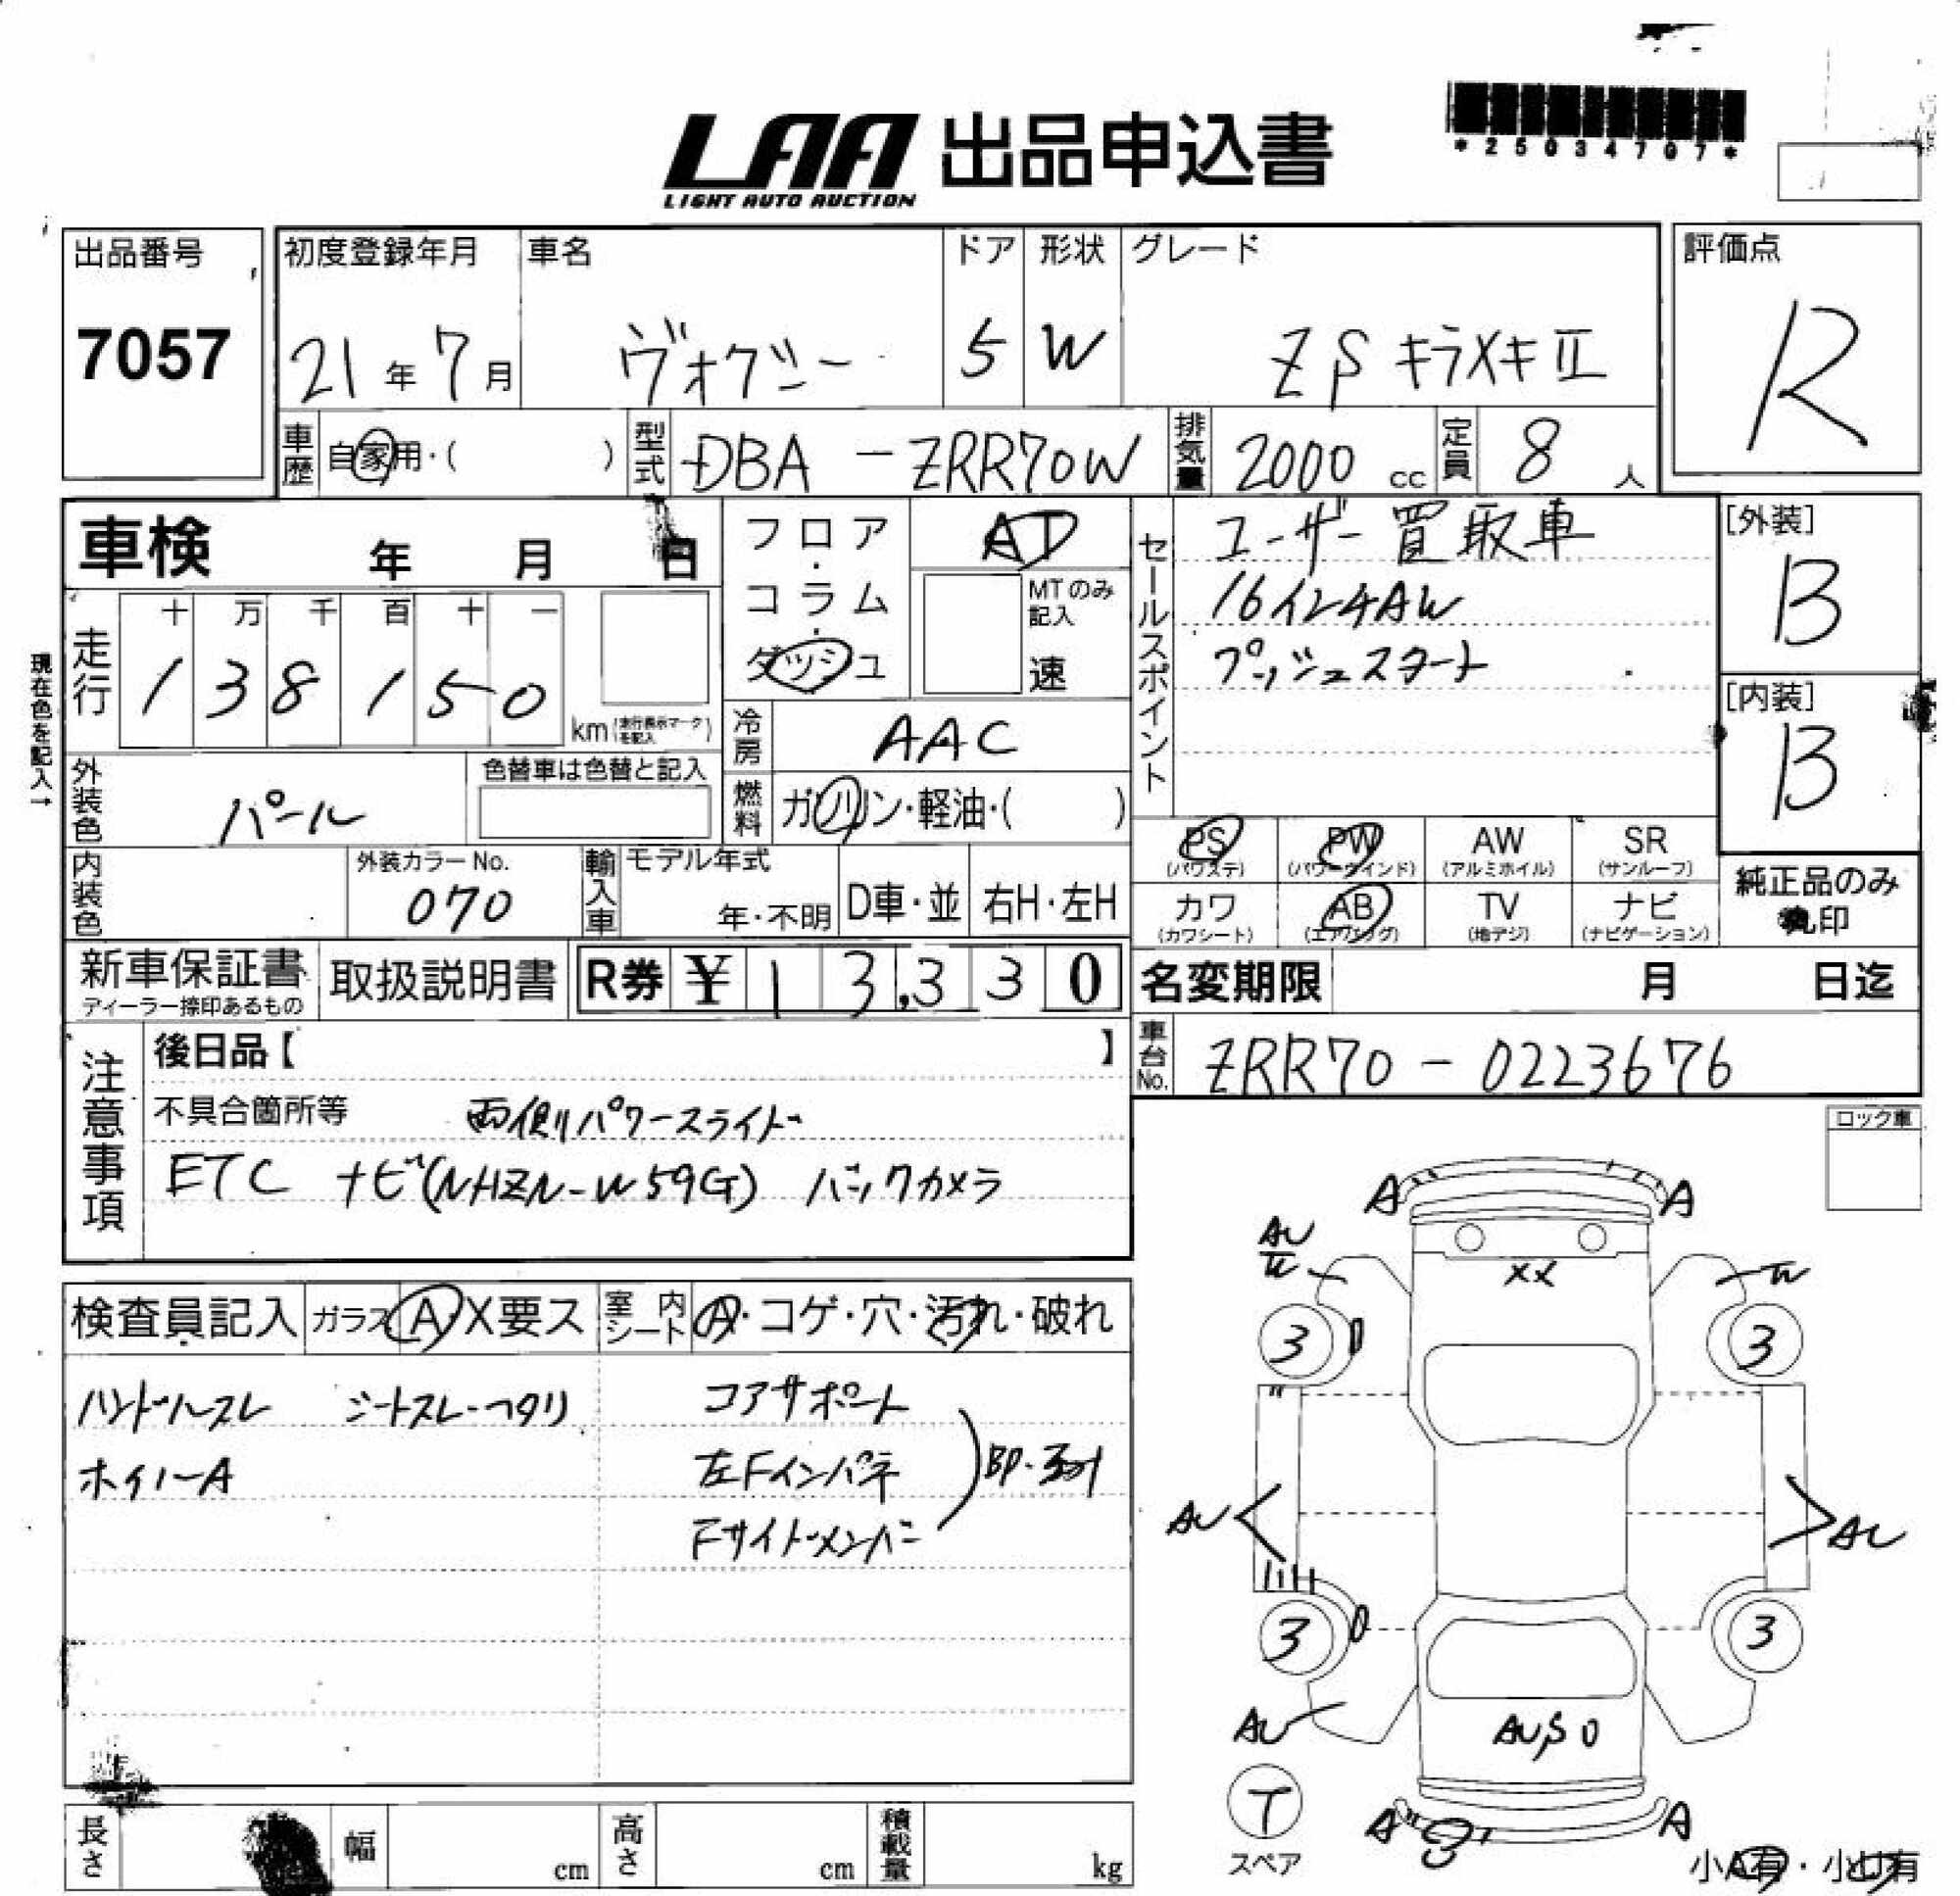 *25034707*
LAA 出品申込書
LIGHT AUTO AUCTION
出品番号
7057
初度登録年月
21年7月
車名
ヴォクシー
ドア
5
形状
W
グレード
ZS キラメキⅡ
評価点
R
車歴
自家用・( )
型式
DBA-ZRR70W
排気量
2000 cc
定員
8 人
車検 年 月 日
走行
十 万 千 百 十 一
1 3 8 1 5 0
km (走行表示マークを記入)
現在色を記入→
外装色
パール
色替車は色替と記入
内装色
外装カラーNo.
070
フロア・コラム・ダッシュ
AT
MTのみ記入
速
冷房
AAC
燃料
ガソリン・軽油・( )
輸入車
モデル年式
年・不明
D車・並
右H・左H
セールスポイント
ユーザー買取車
16インチAW
プッシュスタート
[外装]
B
[内装]
B
PS
(パワステ)
PW
(パワーウインド)
AW
(アルミホイル)
SR
(サンルーフ)
カワ
(カワシート)
AB
(エアバッグ)
TV
(地デジ)
ナビ
(ナビゲーション)
純正品のみ
丸印
新車保証書
ディーラー捺印あるもの
取扱説明書
R券 ¥ 13,330
名変期限 月 日迄
車台No.
ZRR70-0223676
注意事項
後日品【 】
不具合箇所等
両側パワースライド
ETC ナビ(NHZN-W59G) バックカメラ
ロック車
検査員記入
ガラス A・X要ス
室内シート
A・コゲ・穴・汚れ・破れ
ハンドルスレ シートスレ・ヘタリ
ホイルA
コアサポート
左Fインパネ
Fサイドメンバー
A A
AU
W
W
XX
3 3
AU AU
3 3
AU
T
スペア
A
A
小A有・小U有
長さ
幅
cm
高さ
cm
積載量
kg